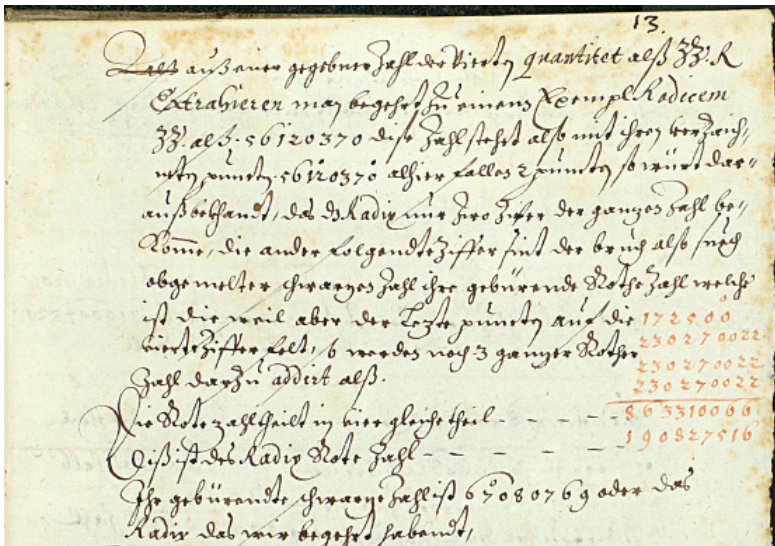 13.
Alß auß einer gegebner Zahl der Vierten quantitet alß ZZ. R
Extrahieren man begehrt zu einem Exempl Radicem
ZZ. alß. 56120370 dise Zahl stehet also mit ihren verzaich,
neten puncten. 56120370 alhier fallen 2 puncten so würt dar=
auß bekhandt, das Radix nur zwo Zifer der ganzen Zahl be,
Komme, die ander folgendte Ziffer sint der bruch also such
obgemelter schwarzen Zahl ihre gebürende Rothe Zahl welche
ist die weil aber der Lezte puncten auf die 172500
vierte Ziffer felt, so werden noch 3 ganzer Rother 230270022
230270022
Zahl darzu addirt alß. 230270022
Die Rote zahl theilt in vier gleiche theil - - - - - 863310066
Diß ist des Radix Rote Zahl - - - - - 190827516
Ihr gebürendte schwarze Zahl ist 67080769 oder das
Radix das wir begehrt habendt,